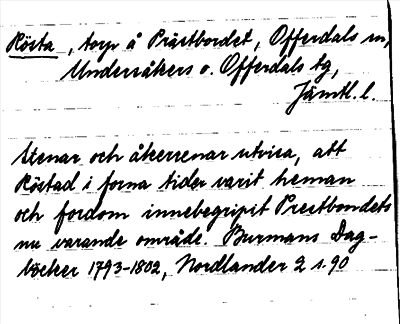 Rösta, torp å Prästbordet, Offerdals sn,
Undersåkers o. Offerdals tg,
Jämtl. l.
Stenar och åkerrenar utvisa, att
Röstad i forna tider varit heman
och fordom innebegripit Prestbondets
nu varande område. Burmans Dag-
böcker 1793-1802, Nordlander 2 s. 90